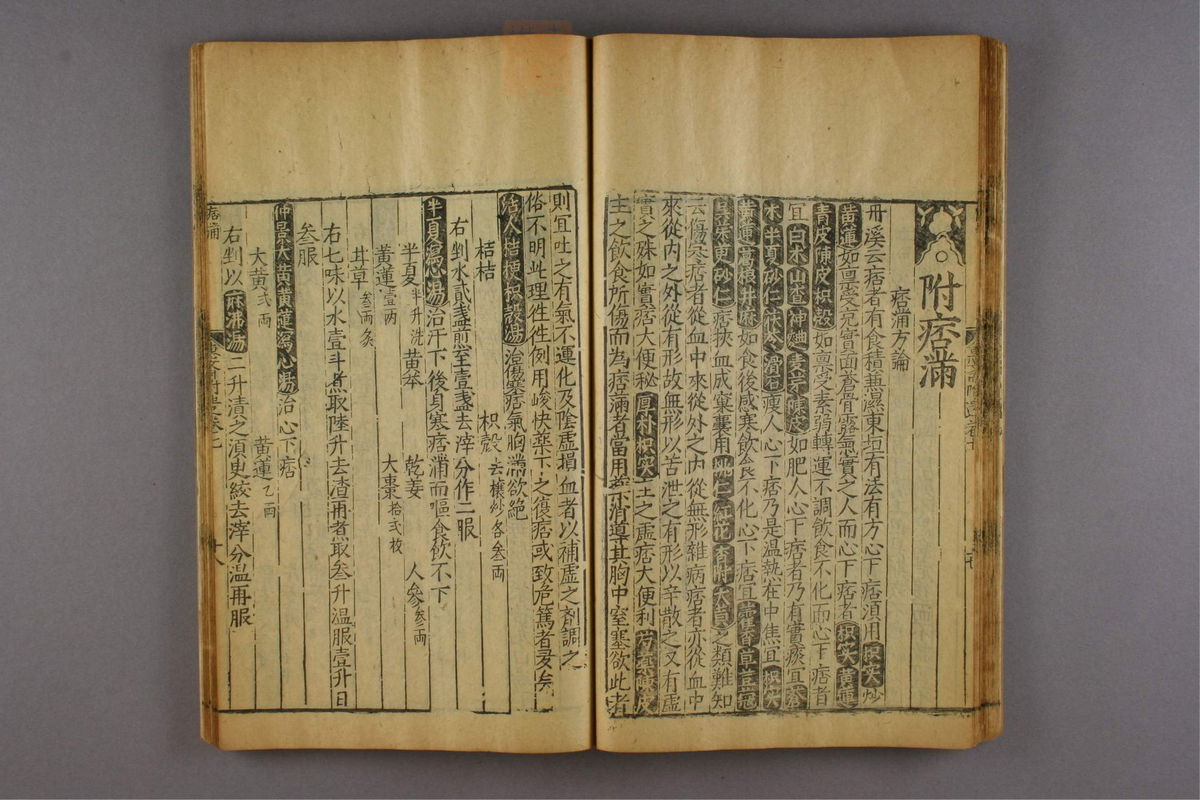 附痞滿
痞滿方論
丹溪云痞者有食積兼濕東垣有法有方心下痞湏用枳实炒
黃連如禀受充實面蒼骨露氣實之人而心下痞者枳实黃連
青皮陳皮枳殼如禀受素弱轉運不調飲食不化而心下痞者
宜白术山查神麯麦芽陳皮如肥人心下痞者乃有實痰宜蒼
术半夏砂仁茯苓滑石瘦人心下痞乃是温熱在中焦宜枳实
黃連葛根升麻如食後感寒飲食不化心下痞宜藿香草豆蔻
吳茱萸砂仁痞挾血成窠囊用桃仁紅花香附大黃之類難知
云傷寒痞者從血中來從外之内從無形雜病痞者亦從血中
來從内之外從有形故無形以苦泄之有形以辛散之又有虛
實之殊如實痞大便秘厚朴枳实主之虛痞大便利芍薬陳皮
主之飲食所傷而為痞滿者當用薬消導其胸中窒塞欲此者
則宜吐之有氣不運化及陰虛損血者以補虛之剤調之
俗不明此理徃徃例用峻快薬下之復痞或致危篤者多矣
活人桔梗枳殼湯治傷寒痞氣胸滿欲絶
桔桔 枳殼去穰炒各叁両
右剉水貳盞煎至壹盞去滓分作二服
半夏瀉心湯治汗下後身寒痞滿而嘔食飲不下
半夏半升洗 黄芩 乾姜 人參叁両
黄連壹両 大棗拾貳枚
甘草叁両炙
右七味以水壹斗煮取陸升去渣再煮取叁升温服壹升日
叁服
仲景大黄黄連瀉心湯治心下痞
大黄貳両 黄連乙両
右剉以麻沸湯二升漬之湏臾絞去滓分温再服
痞滿